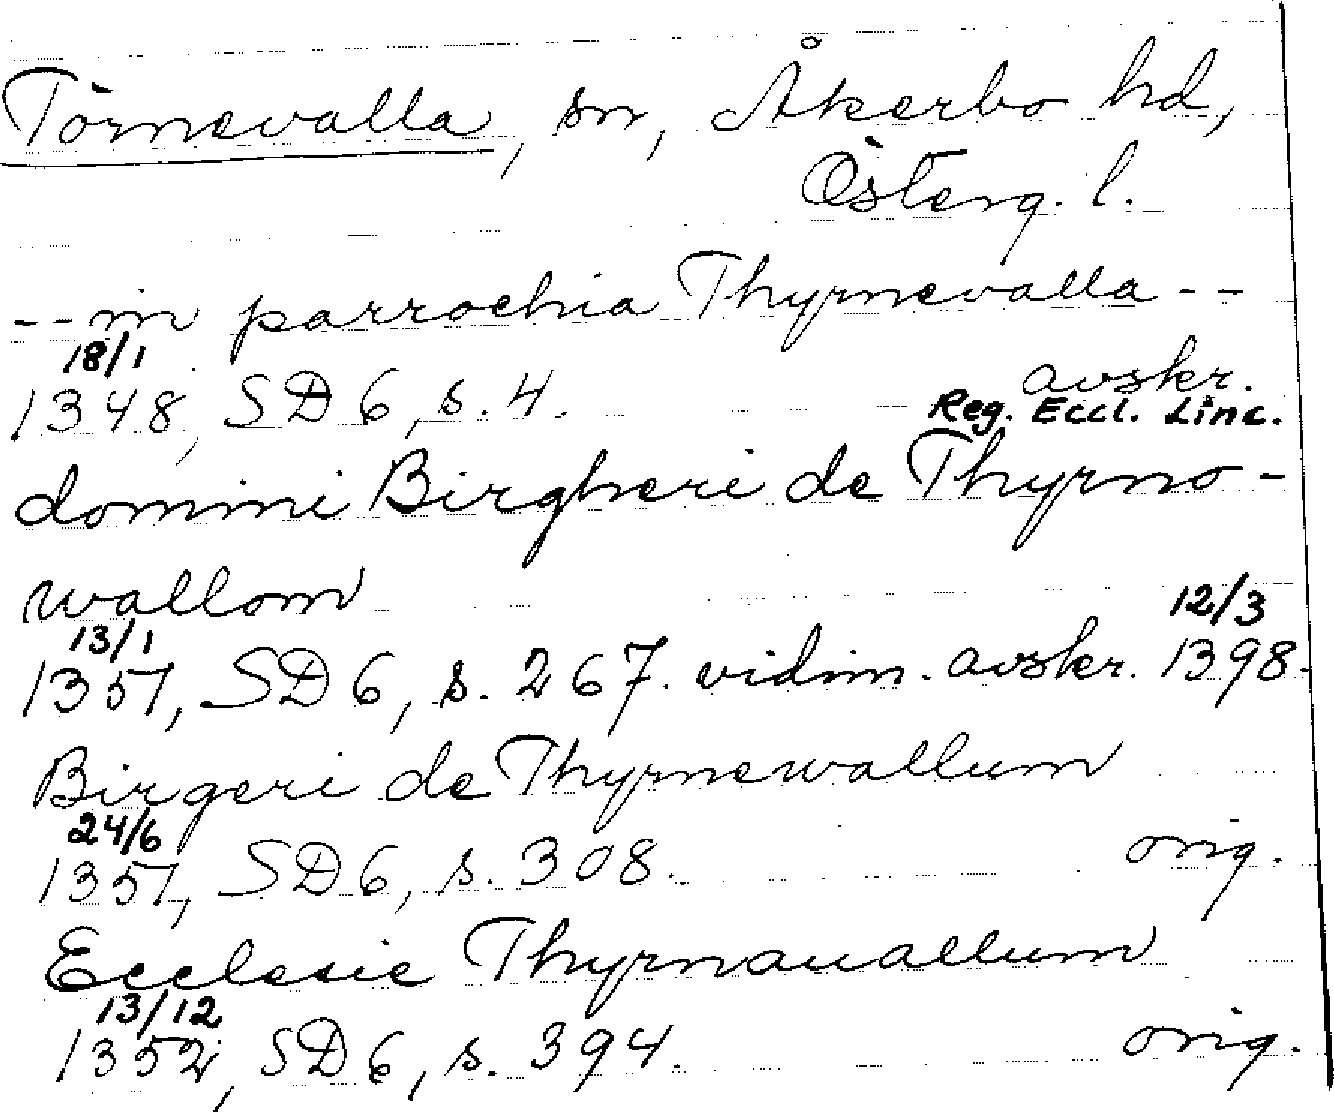 Törnevalla, sn, Åkerbo hd,
Österg. l.
-- in parrochia Thyrnevalla --
18/1
1348, SD 6, s. 4. avskr.
Reg. Eccl. Linc.
domini Birgheri de Thyrno-
wallom
13/1 12/3
1351, SD 6, s. 267. vidim. avskr. 1398.
Birgeri de Thyrnewallum
24/6
1351, SD 6, s. 308. orig.
Ecclesie Thyrnauallum
13/12
1352, SD 6, s. 394. orig.